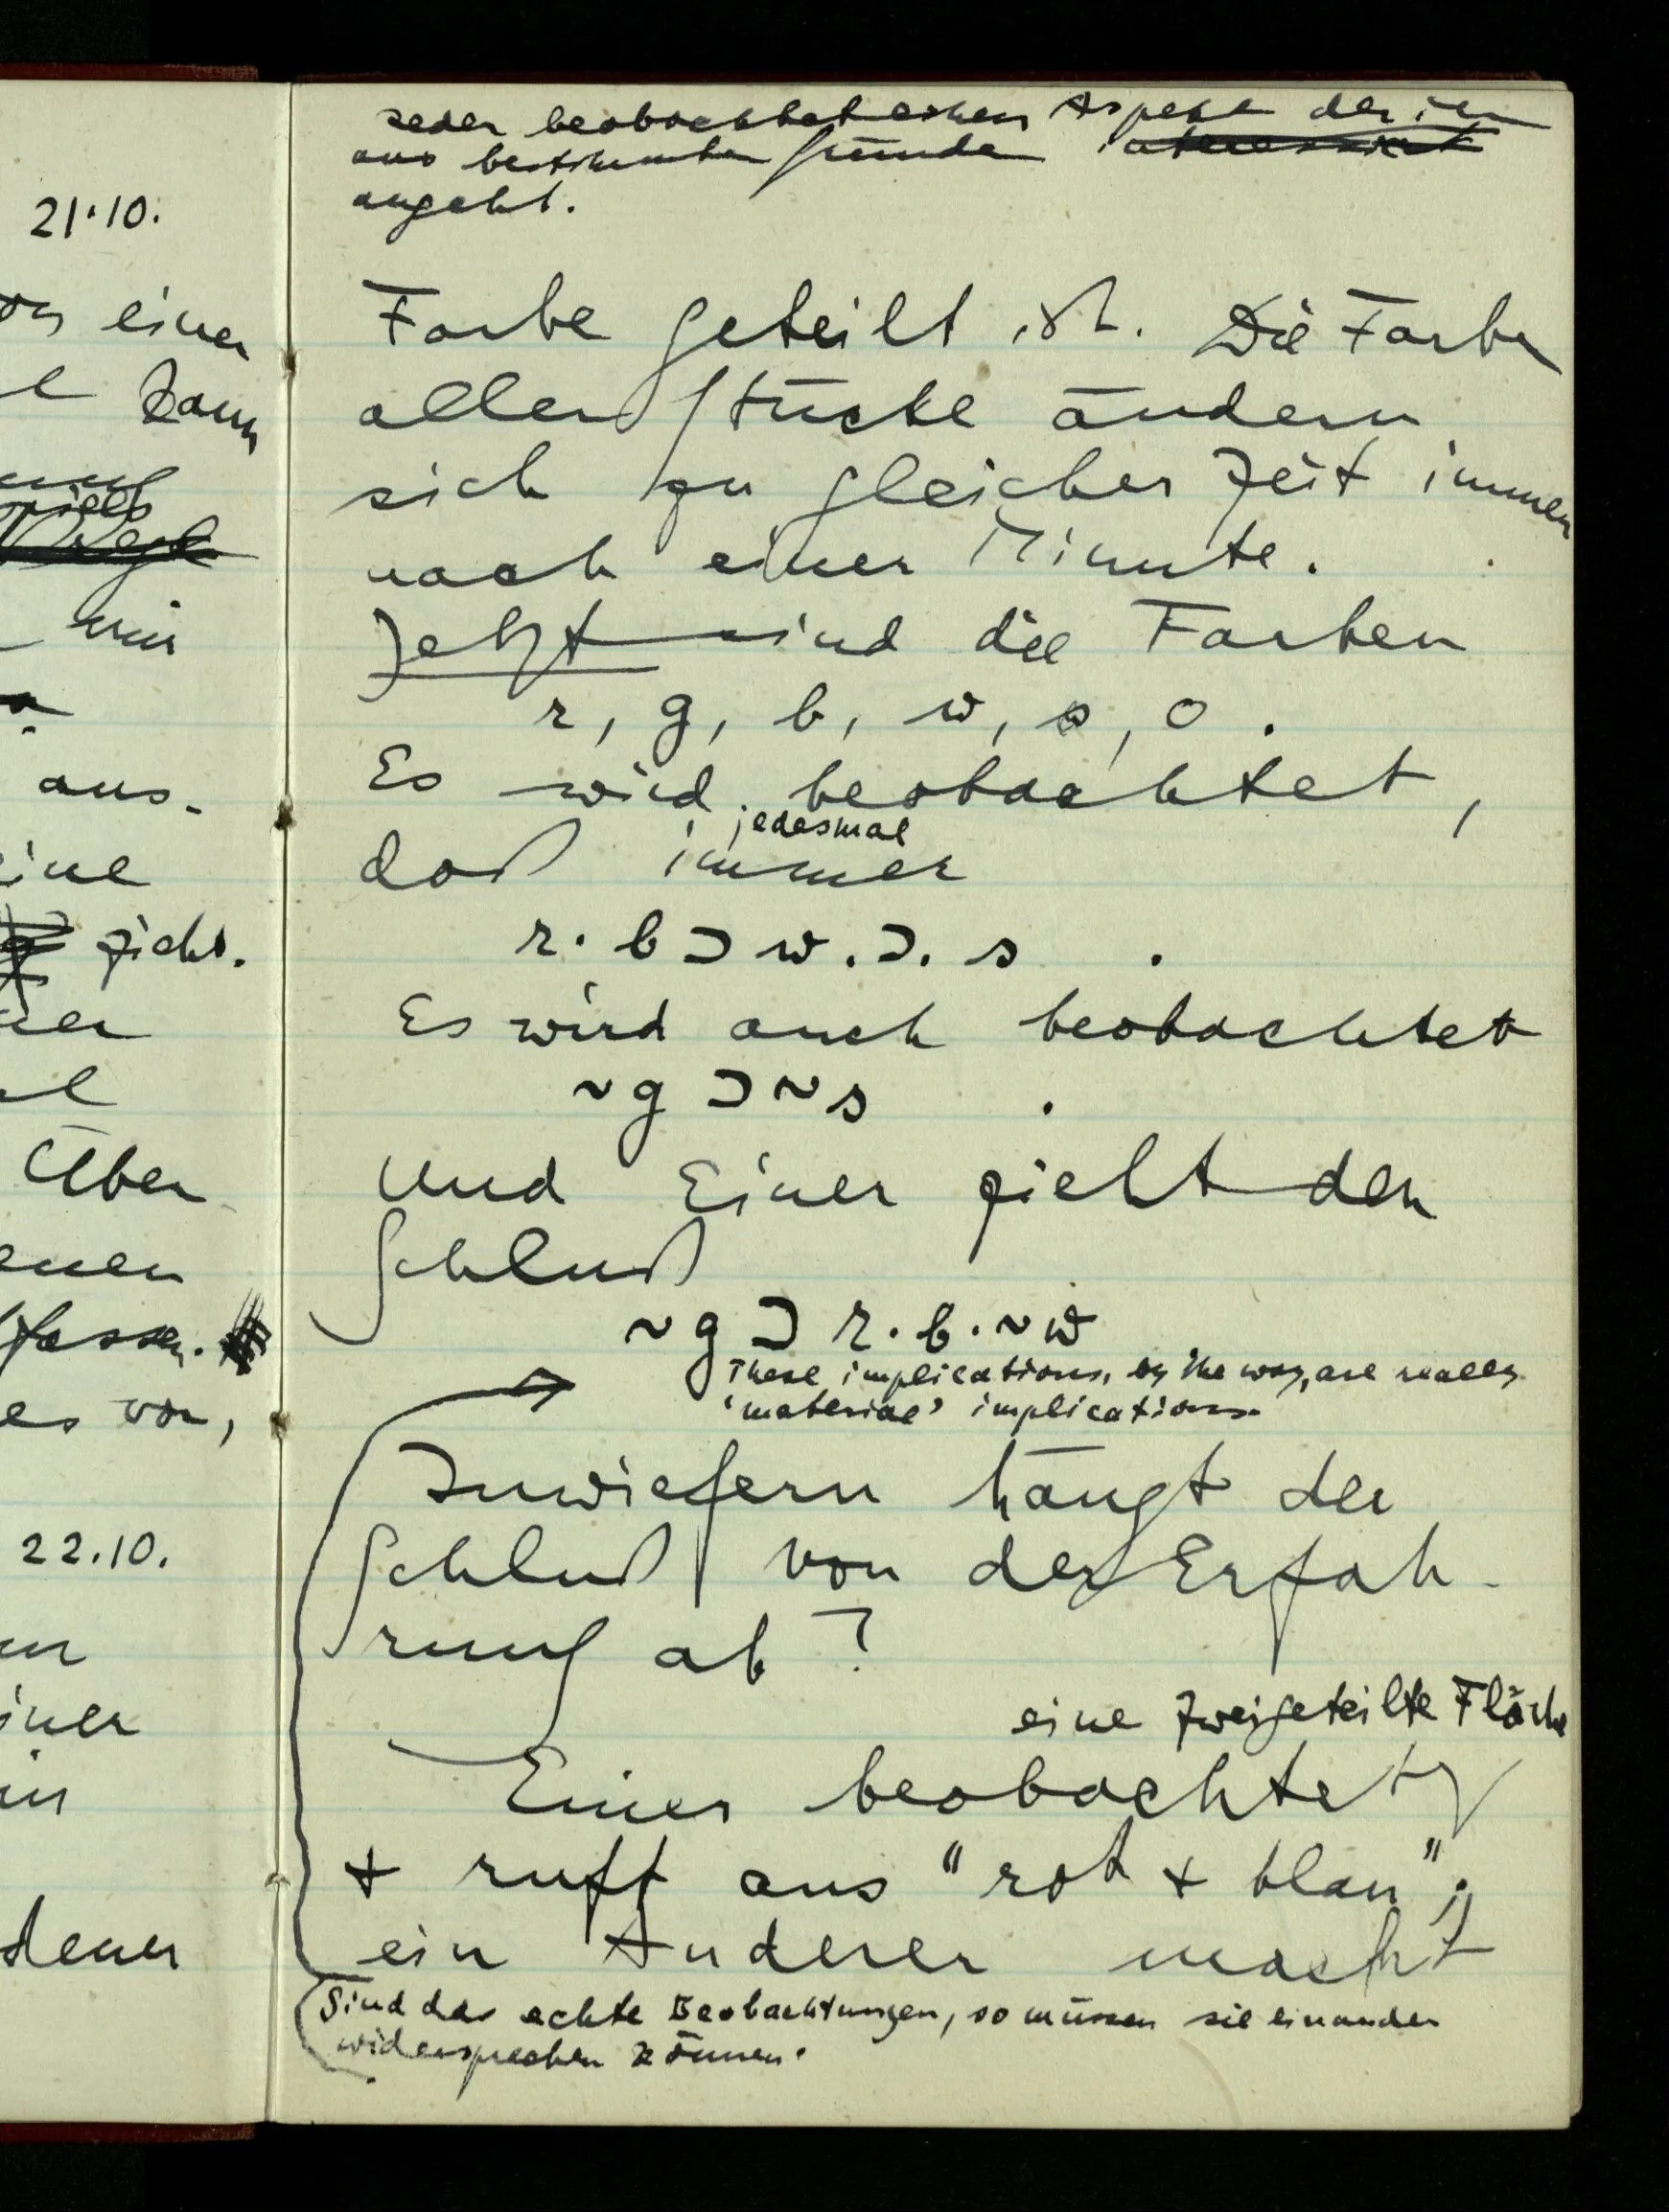 21.10.
einer
kann
wir
aus-
eine
zieht.
Über
fassen.
es vor,
22.10.
einer
jeder beobachtet einen Aspekt der ihn
aus bestimmten Gründen interessiert
angeht.
Farbe geteilt ist. Die Farben
aller Stücke ändern
sich zu gleicher Zeit immer
nach einer Minute.
Jetzt sind die Farben
r, g, b, w, s, o.
Es wird beobachtet,
jedesmal
daß immer
r . b ⊃ w . ⊃ . s .
Es wird auch beobachtet
~g ⊃ ~s .
Und Einer zieht den
Schluß
~g ⊃ r . b . ~w
These implications, by the way, are really
'material' implications.
Inwiefern hängt der
Schluß von der Erfah-
rung ab?
eine zweigeteilte Fläche
Einer beobachtet
+ ruft aus "rot + blau";
ein Anderer macht
Sind das echte Beobachtungen, so müssen sie einander
widersprechen können.